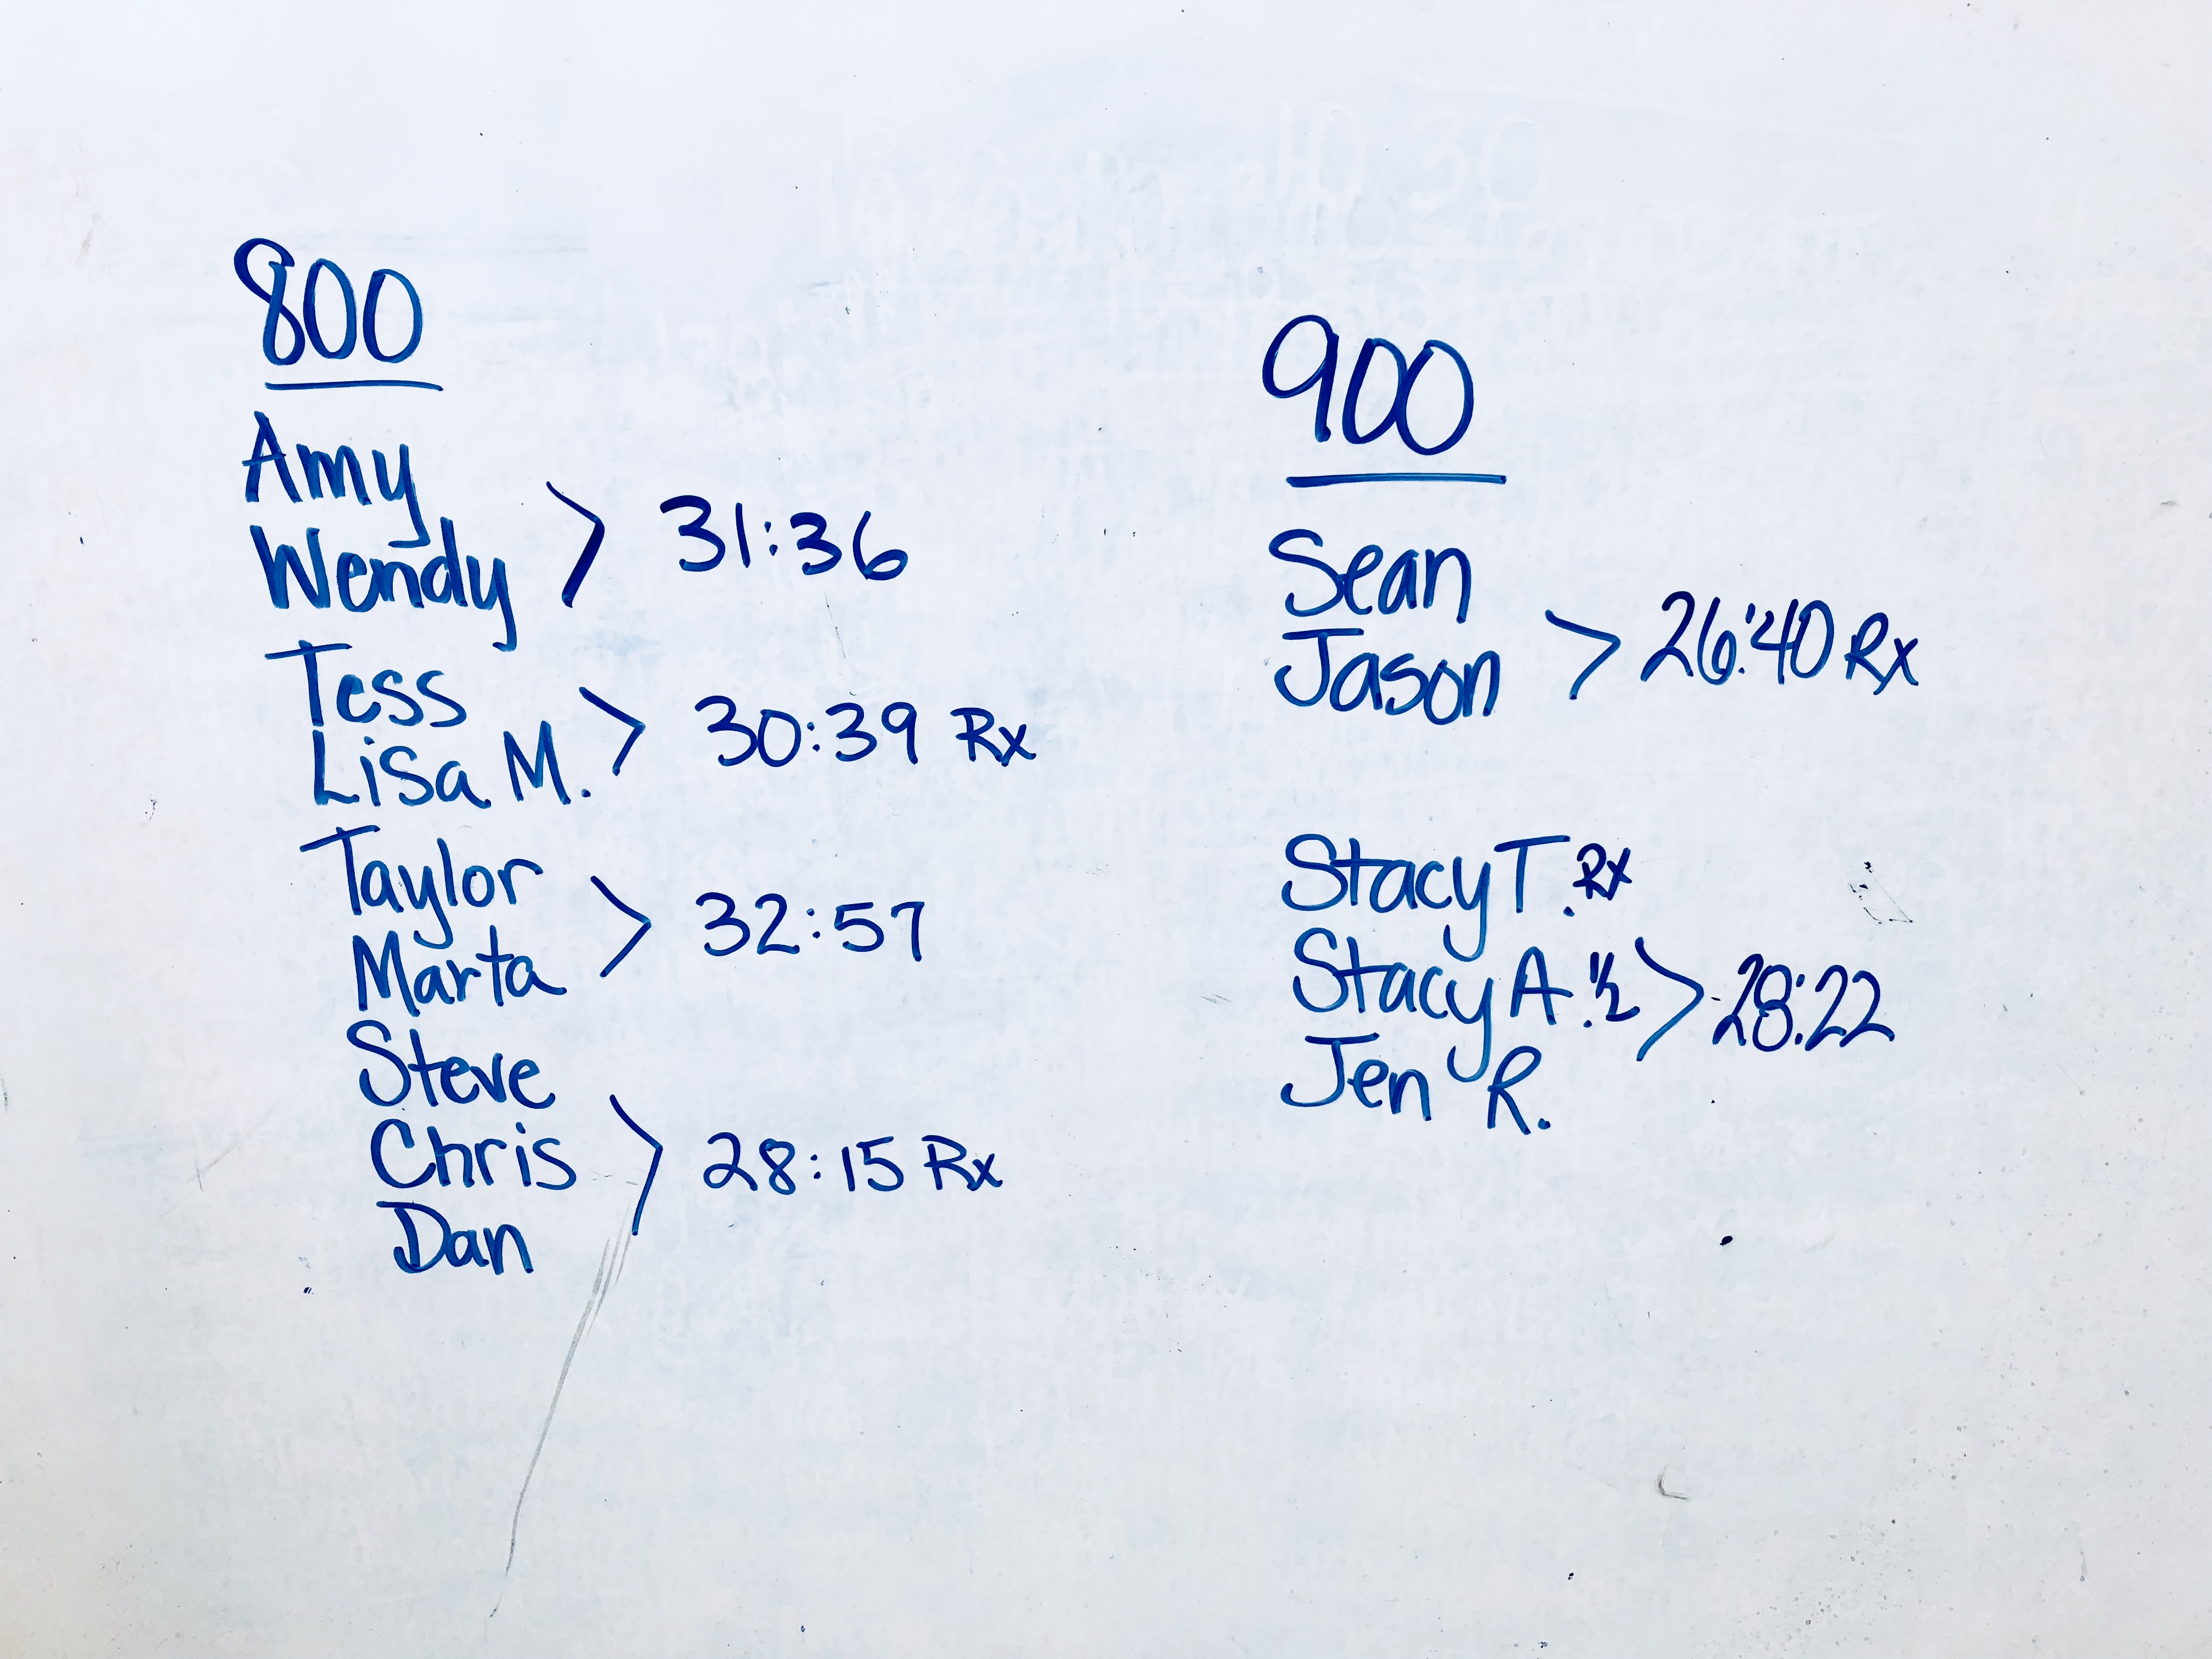 800
Amy
Wendy > 31:36
Tess
Lisa M. > 30:39 Rx
Taylor
Marta > 32:57
Steve
Chris > 28:15 Rx
Dan
900
Sean
Jason > 26:40 Rx
Stacy T. Rx
Stacy A. 1/2 > 28:22
Jen R.